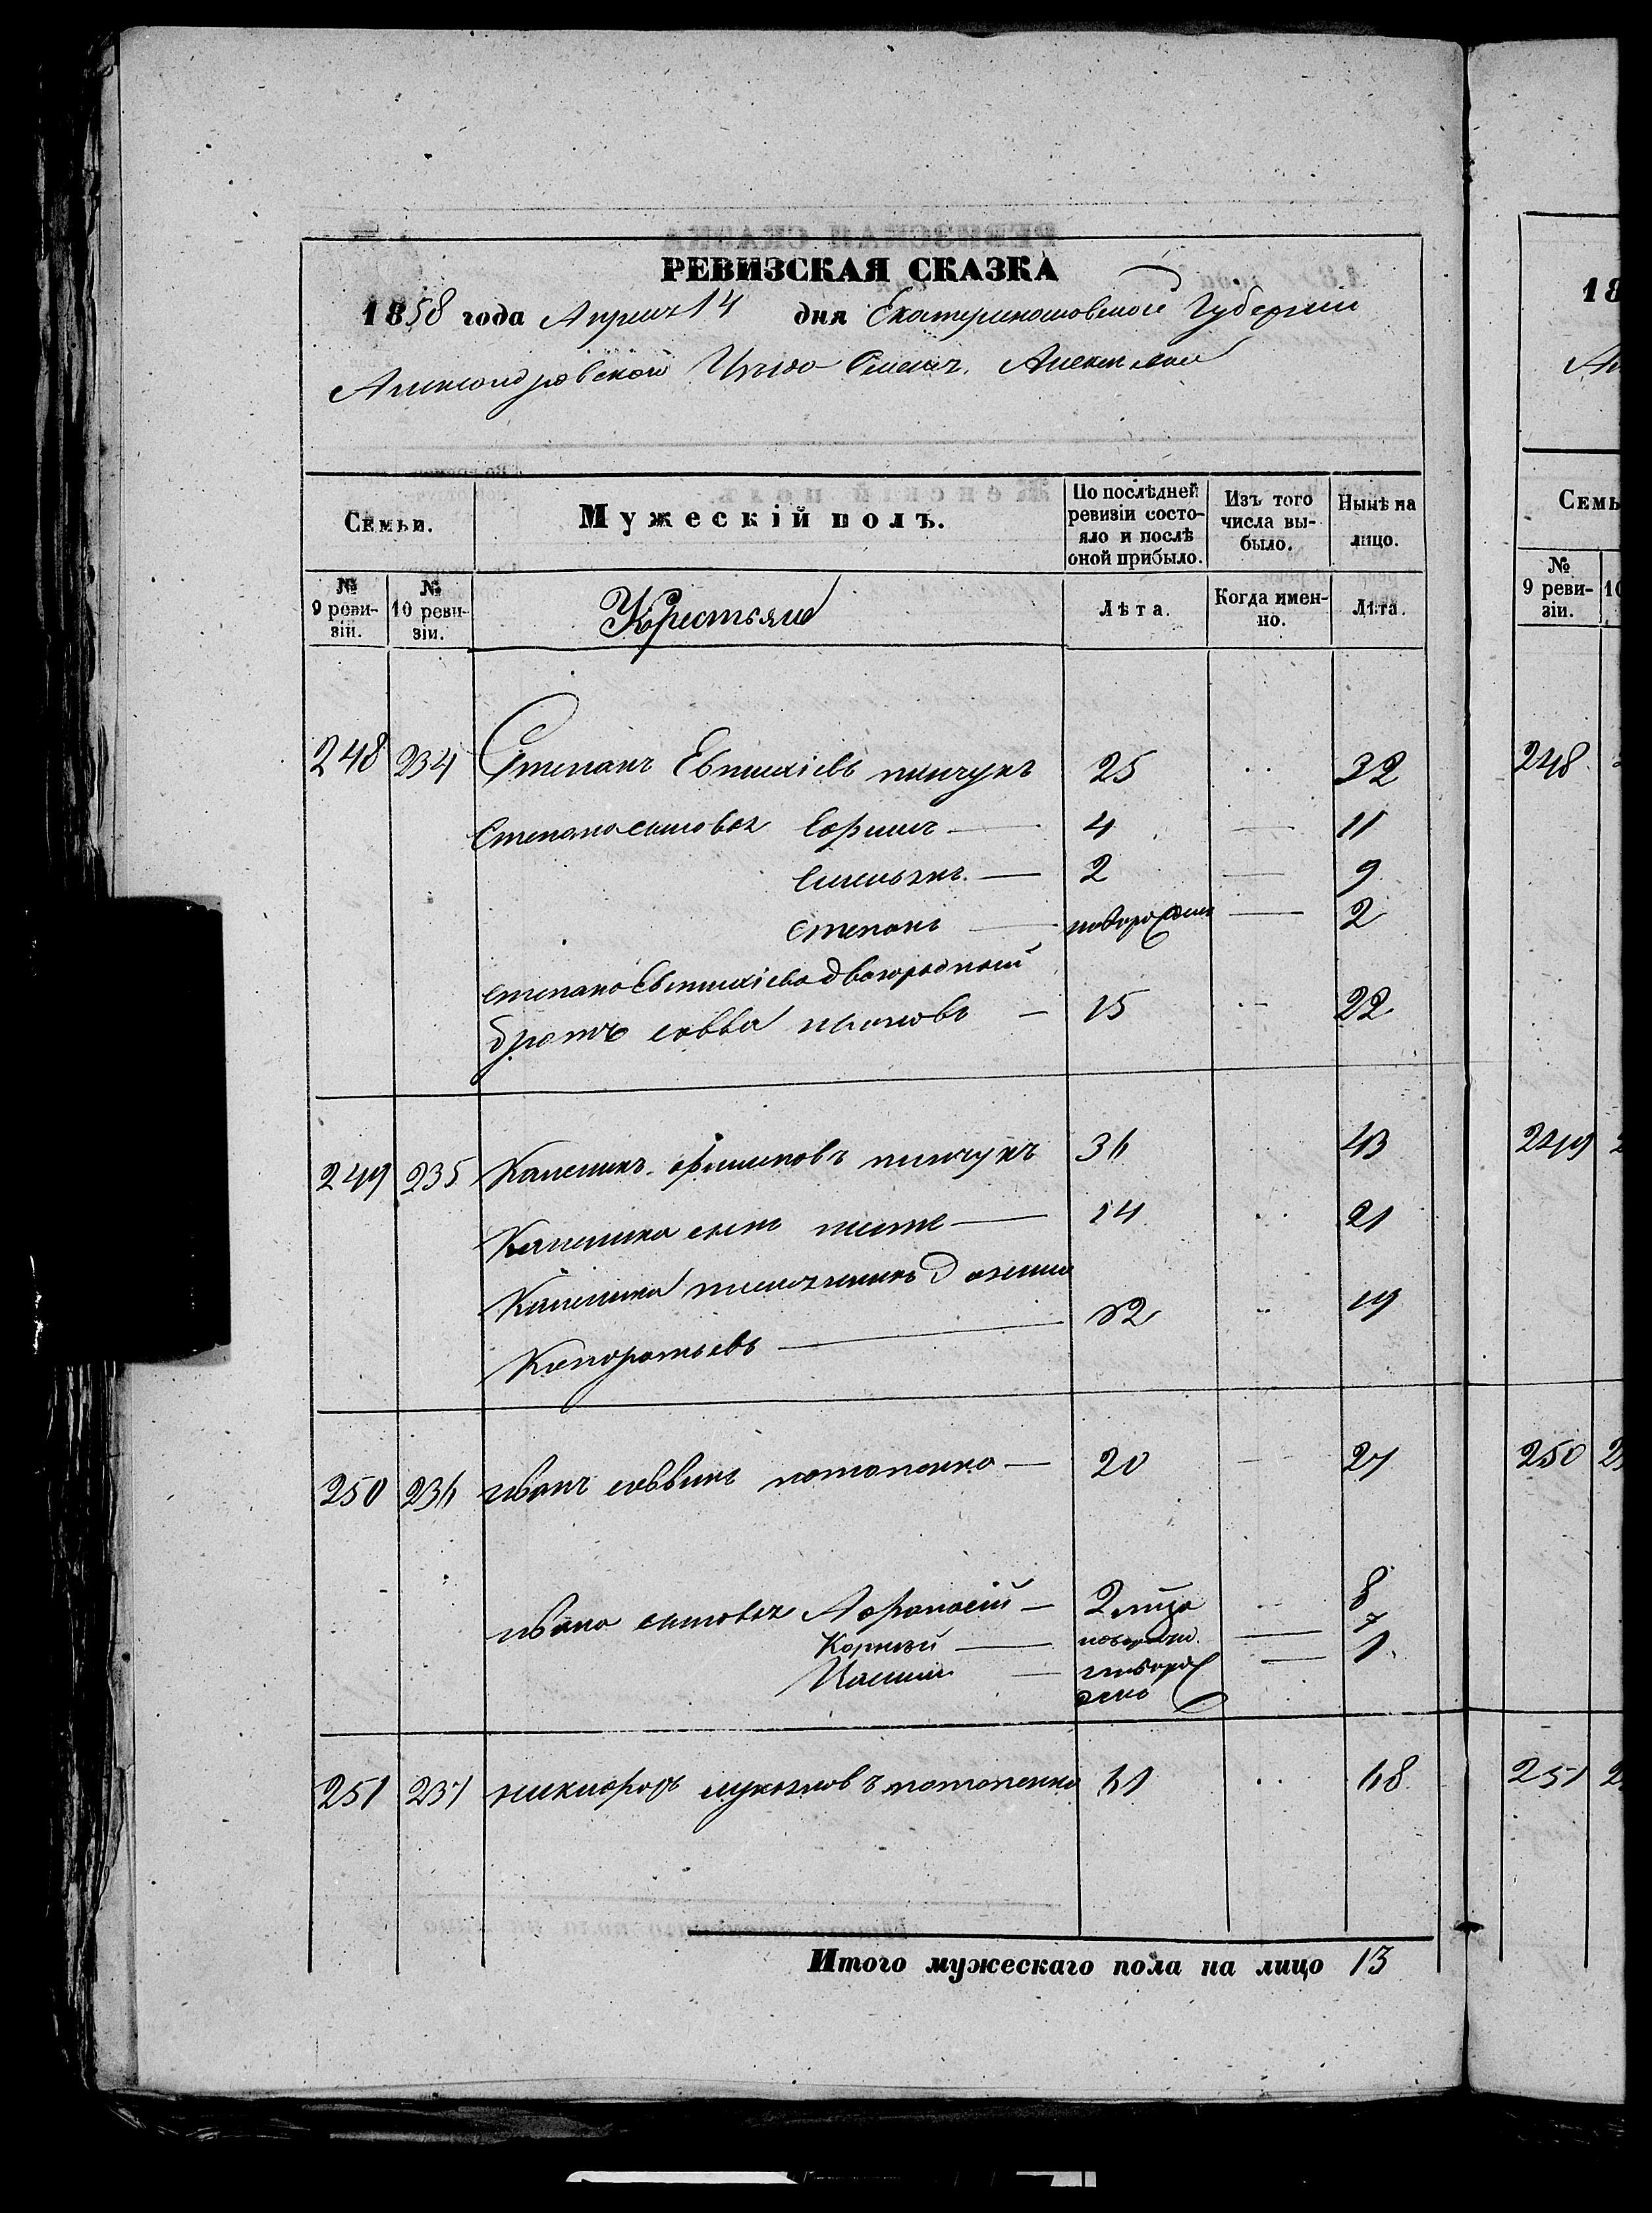 РЕВИЗСКАЯ СКАЗКА
1858 года Апреля 14 дня Екатеринославской Губернии
Александровского Уезда
Семьи. Мужескій полъ. По послѣдней ревизіи состояло и послѣ оной прибыло. Изъ того числа выбыло. Нынѣ на лицо.
№ 9 ревизіи. № 10 ревизіи. Крестьяне Лѣта. Когда именно. Лѣта.
248 234 Степанъ Евтихіевъ пинчукъ 25 32
Степана сыновья 4 — 11
— 2 — 9
степанъ — новорожден — 2
степана Евтихіева двоюродный
братъ савва — 15 22
249 235 Каленикъ пинчукъ 36 43
Каленика сынъ — 14 21
Каленика племянникъ
Кондратьевъ — 12 19
250 236 иванъ саввинъ потапенко — 20 27
ивана сыновья Афанасій — 2 8
Корнѣй — новорожден. — 7
— новорожденъ — 1
251 237 никифоръ потапенко 61 68
Итого мужескаго пола на лицо 13
18
Семь
№ 9 ревизіи. 10
248
249
250
251